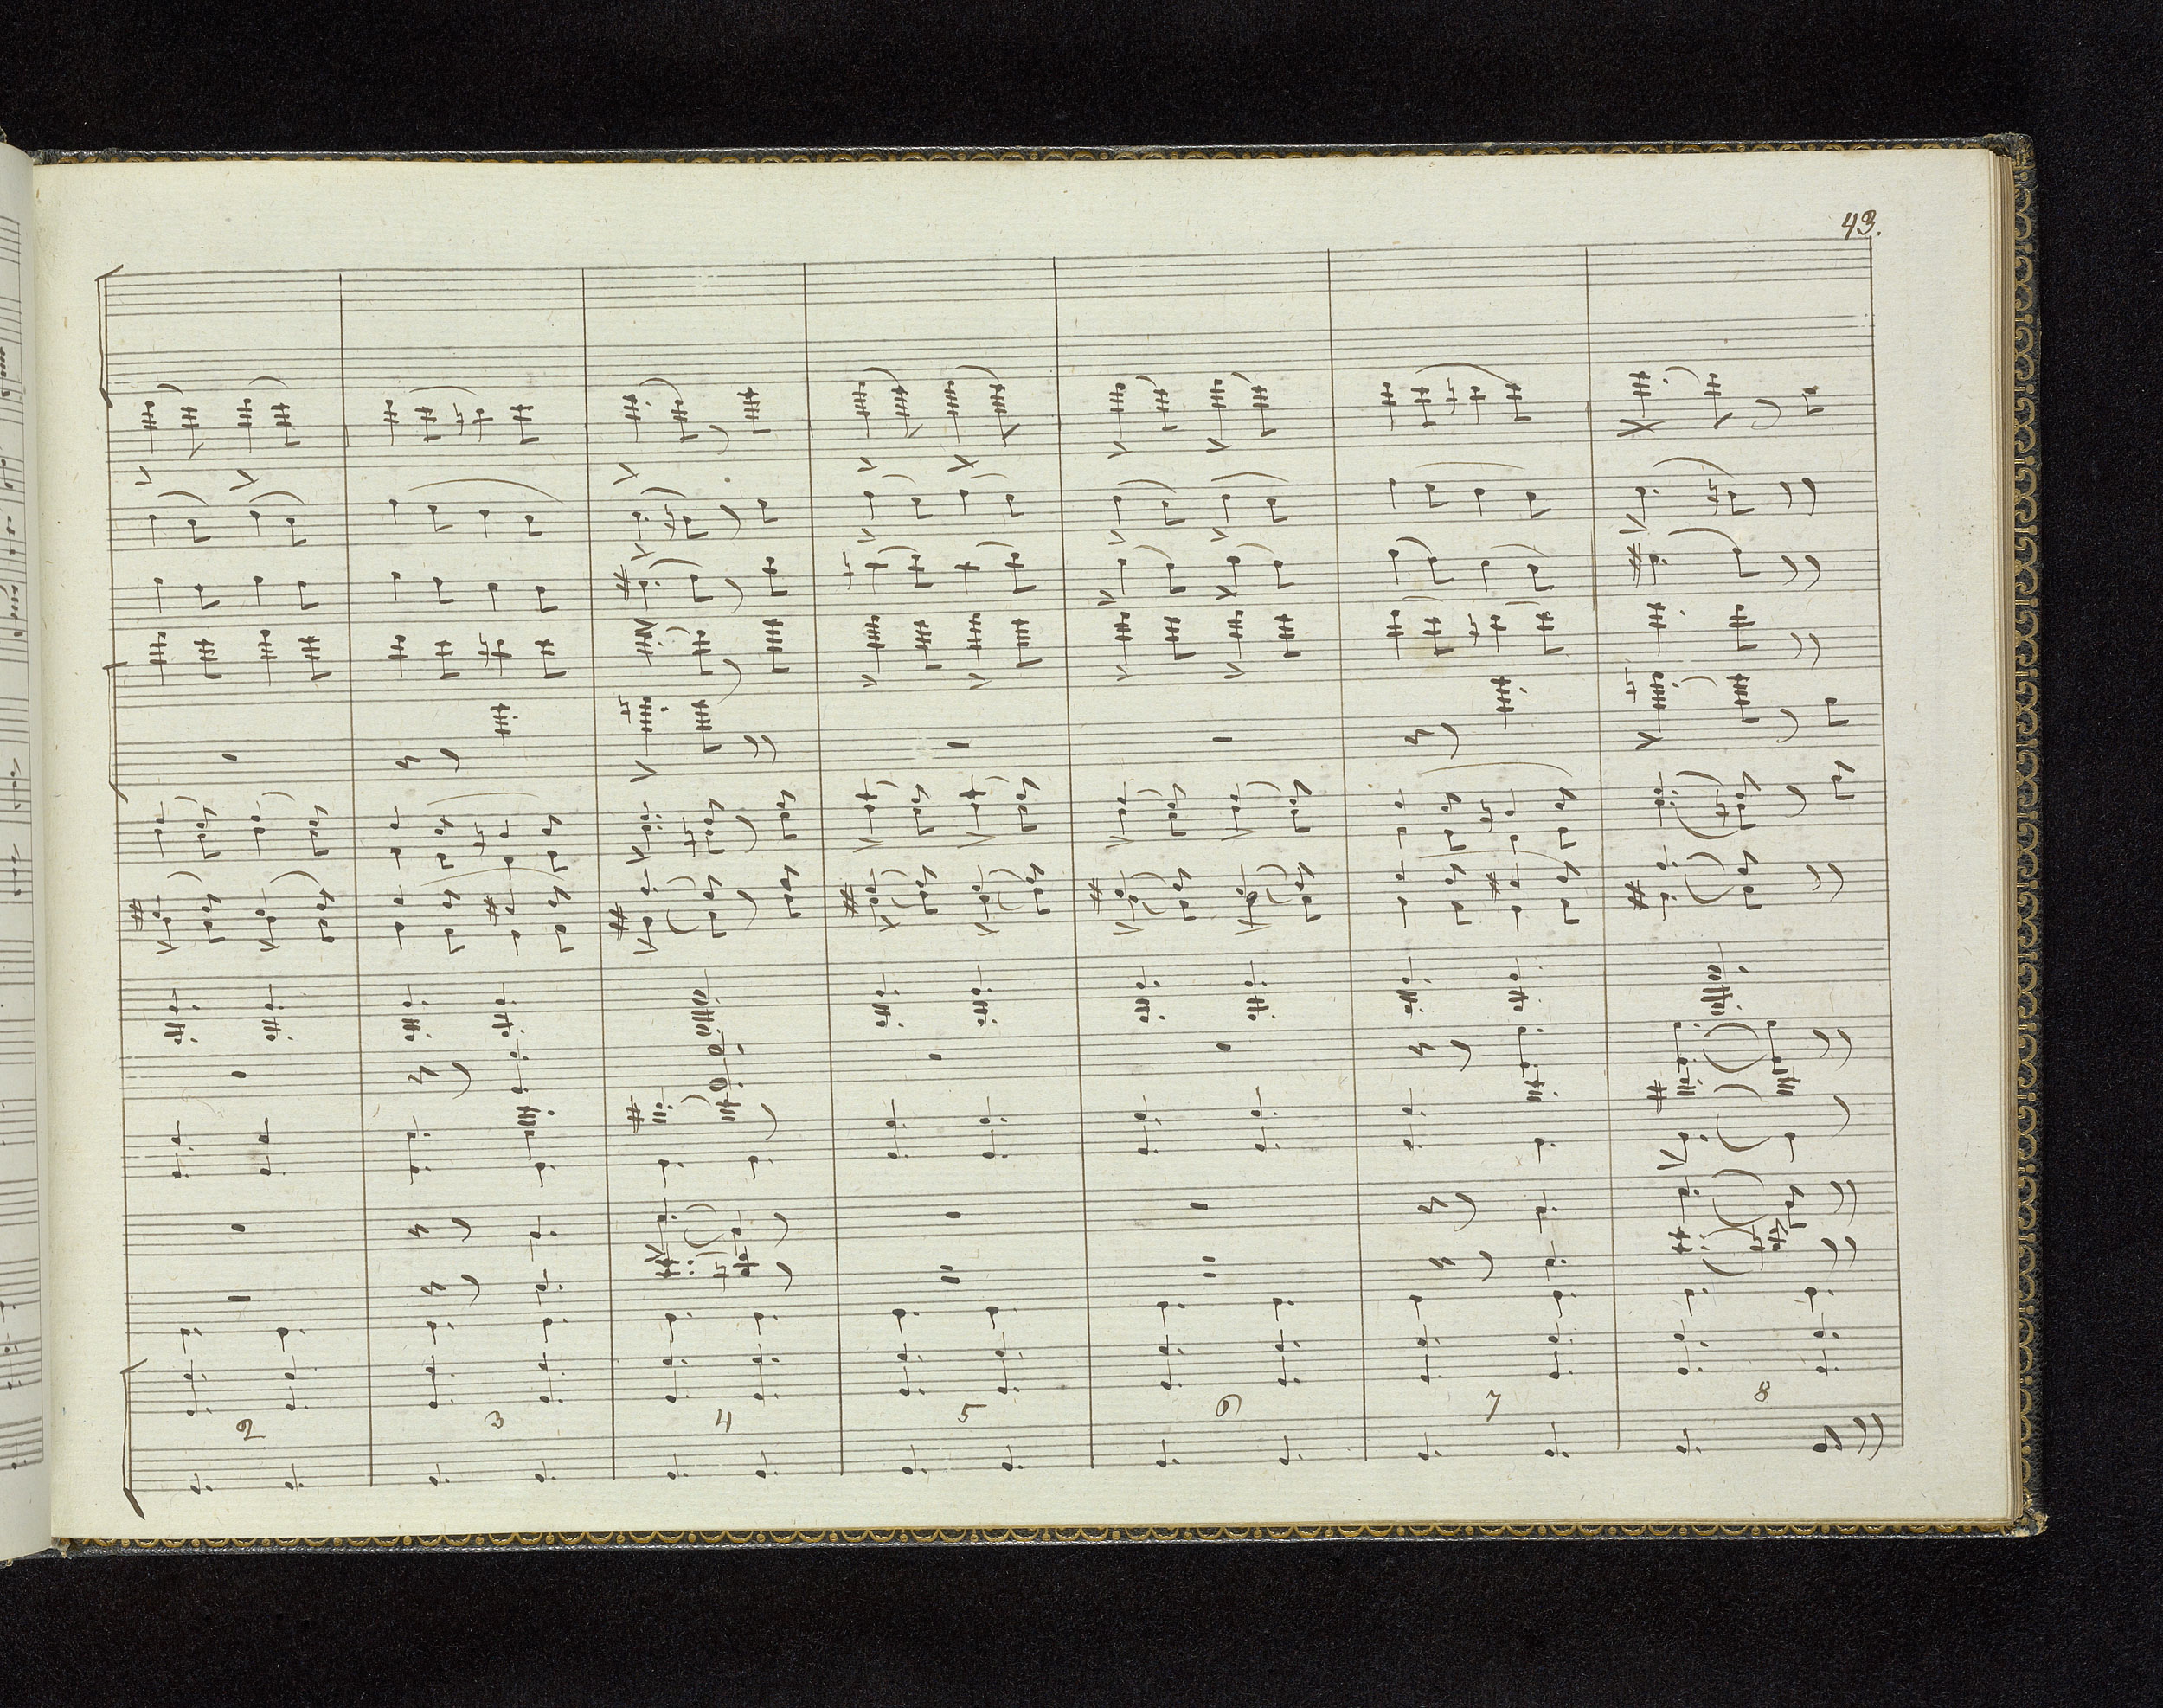 43.
2 3 4 5 6 7 8